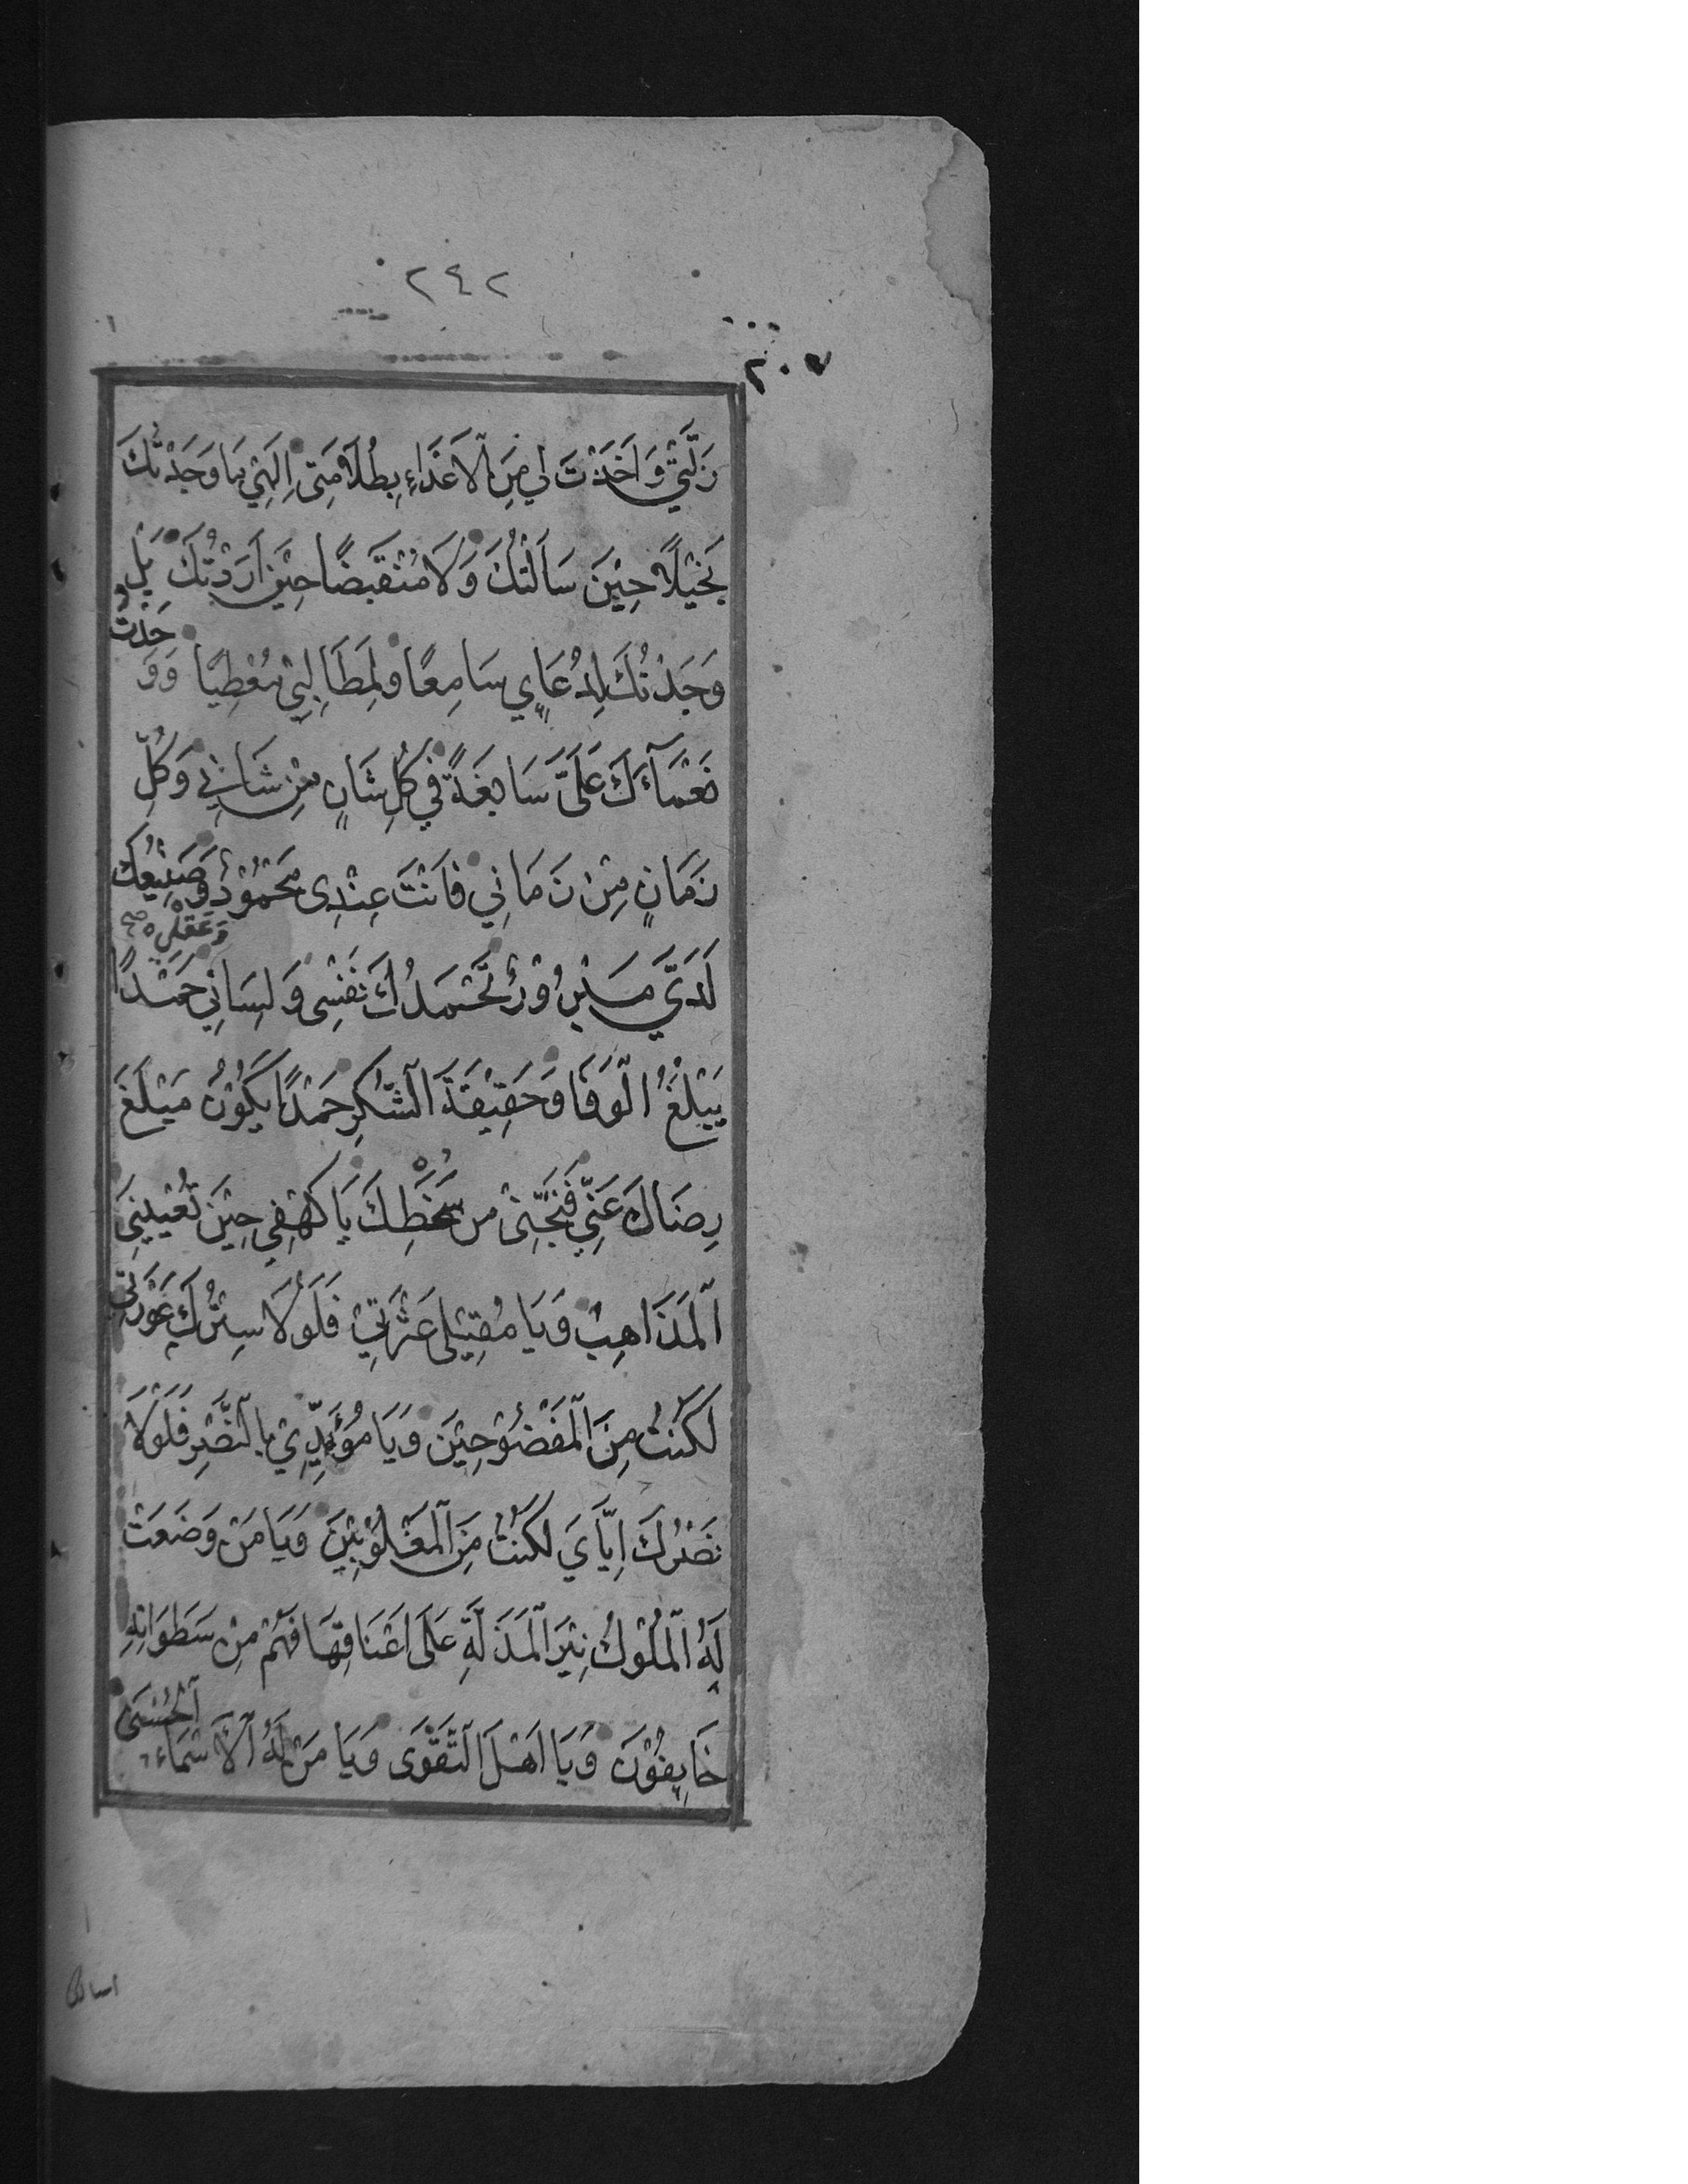 ٢٤٢
٢٠٧
زَلَّتِيْ وَاَخَذْتَ لِي مِنَ اْلاَعْدَاءِ بِظُلاَمَتِى اِلَهِيْ مَا وَجَدْتُكَ
بَخِيْلاً حِيْنَ سَاَلْتُكَ وَلاَ مُنْقَبِضًا حِيْنَ اَرَدْتُكَ بَلْ
وَجَدْتُكَ لِدُعَايِٕ سَامِعًا وَلِمَطَالِبِيْ مُعْطِيًا وَوَجَدْتُ
نَعْمَآءَكَ عَلَىَّ سَابِغَةً فِي كُلِّ شَانٍ مِنْ شَانِي وَكُلِّ
زَمَانٍ مِنْ زَمَانِي فَاَنْتَ عِنْدِى مَحْمُوْدٌ وَصَنِيْعُكَ
لَدَيَّ مَبْرُوْرٌ تَحْمَدُكَ نَفْسِى وَلِسَانِي وَعَقْلِى صح حَمْدًا
يَبْلُغُ الْوَفَا وَحَقِيْقَةَ الشُّكْرِ حَمْدًا يَكُوْنُ مَبْلَغَ
رِضَاكَ عَنِّي فَنَجِّنِىْ مِن سُخْطِكَ يَا كَهْفِي حِيْنَ تُعْيِيْنِىَ
اْلمَذَاهِبُ وَيَا مُقِيْلِى عَثْرَتِيْ فَلَوْلاَ سِتْرُكَ عَوْرَتِي
لَكُنْتُ مِنَ اْلمَفْضُوْحِيْنَ وَيَا مُؤَيِّدِيْ بِالنَّصْرِ فَلَوْلاَ
نَصْرُكَ اِيَّايَ لَكُنْتُ مِنَ اْلمَغْلُوْبِيْنَ وَيَا مَنْ وَضَعَتْ
لَهُ اْلمُلُوْكُ نِيْرَ اْلمَذَلَّةِ عَلَى اَعْنَاقِهَا فَهُمْ مِنْ سَطَوَاتِهِ
خَايِفُوْنَ وَيَا اَهْلَ التَّقْوَى وَيَا مَنْ لَهُ اْلاَسْمَاءُ اْلحُسْنَى
اسالك